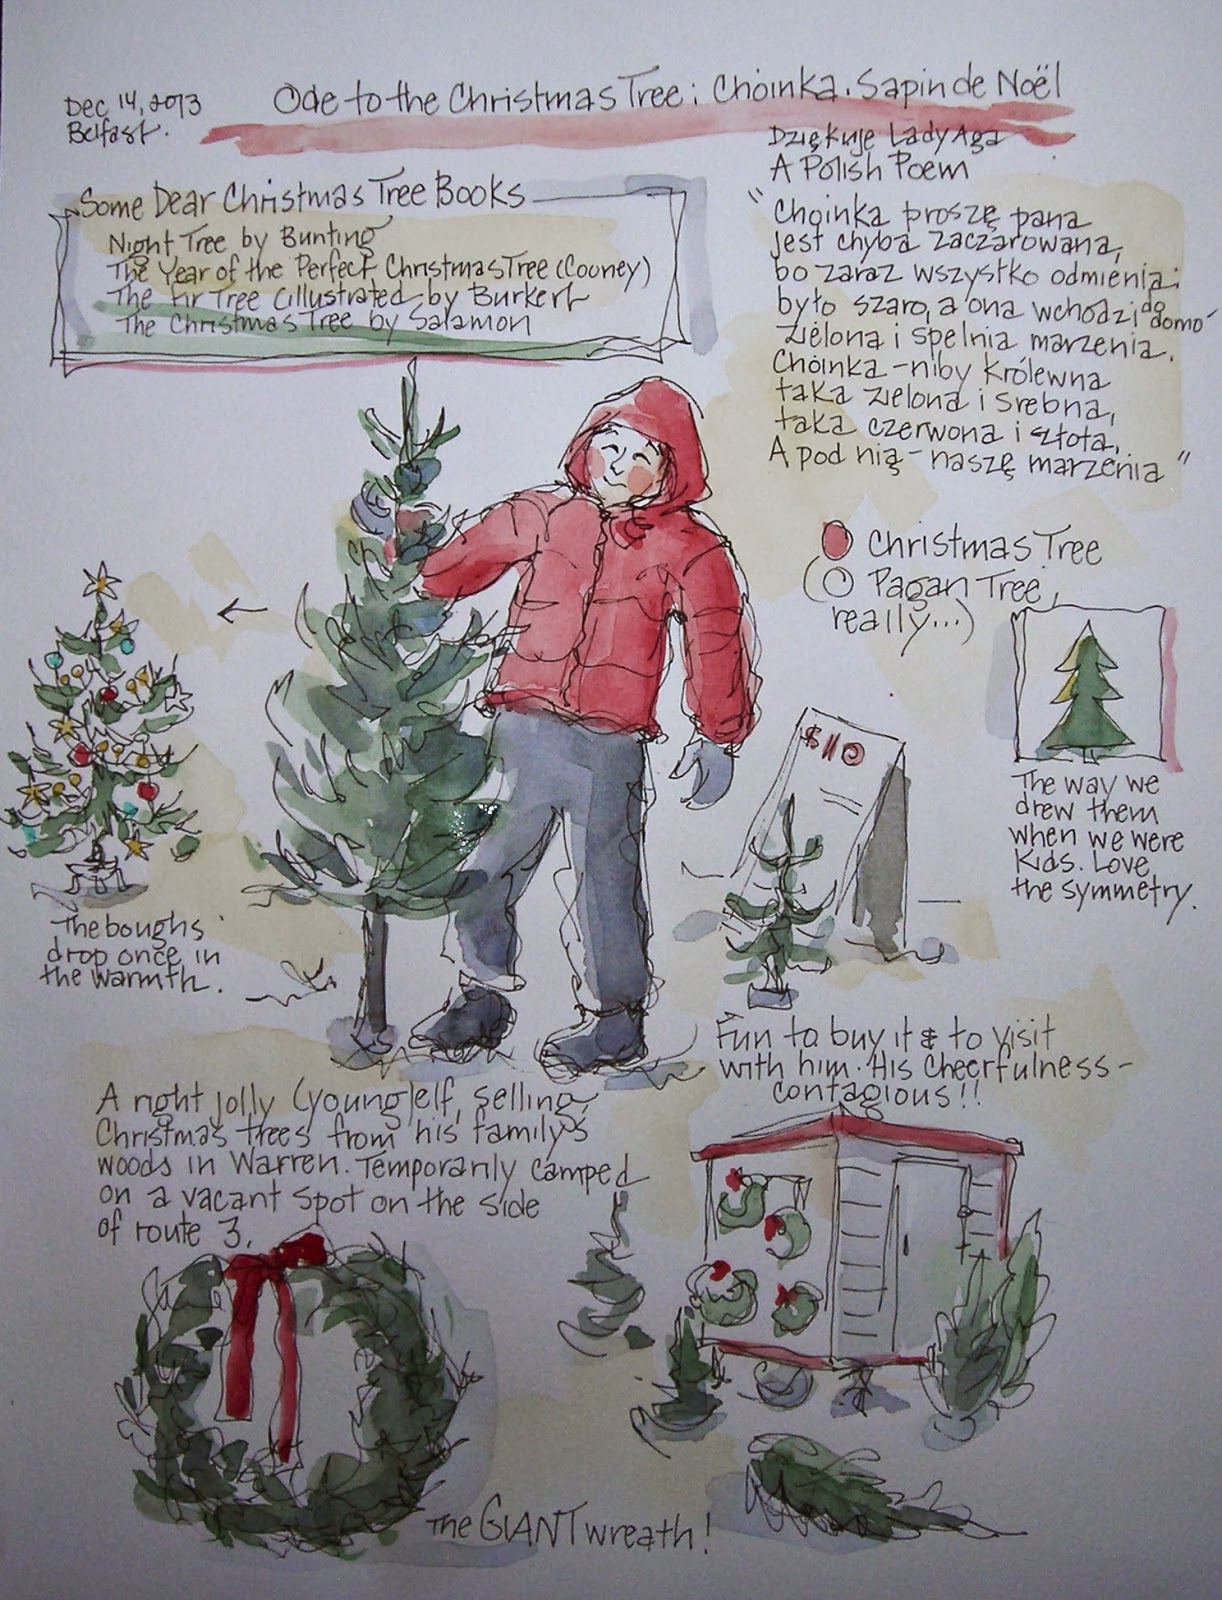 Dec 14, 2013
Belfast.
Ode to the Christmas Tree: Choinka. Sapin de Noël
Some Dear Christmas Tree Books
Night Tree by Bunting
The Year of the Perfect Christmas Tree (Cooney)
The Fir Tree (illustrated by Burkert
The Christmas Tree by Salamon
Dziękuje Lady Aga
A Polish Poem
"Choinka proszę pana
jest chyba zaczarowana,
bo zaraz wszystko odmienia:
było szaro, a ona wchodzi do domo
zielona i spelnia marzenia.
Choinka - niby królewna
taka zielona i srebna,
taka czerwona i złota,
A pod nią - naszę marzenia"
Christmas Tree
(Pagan Tree,
really...)
$10
The way we
drew them
when we were
kids. Love
the symmetry.
The boughs
drop once in
the warmth.
Fun to buy it & to visit
with him. His cheerfulness -
contagious!!
A right jolly (young) elf, selling
Christmas trees from his family's
woods in Warren. Temporarily camped
on a vacant spot on the side
of route 3.
The GIANT wreath!